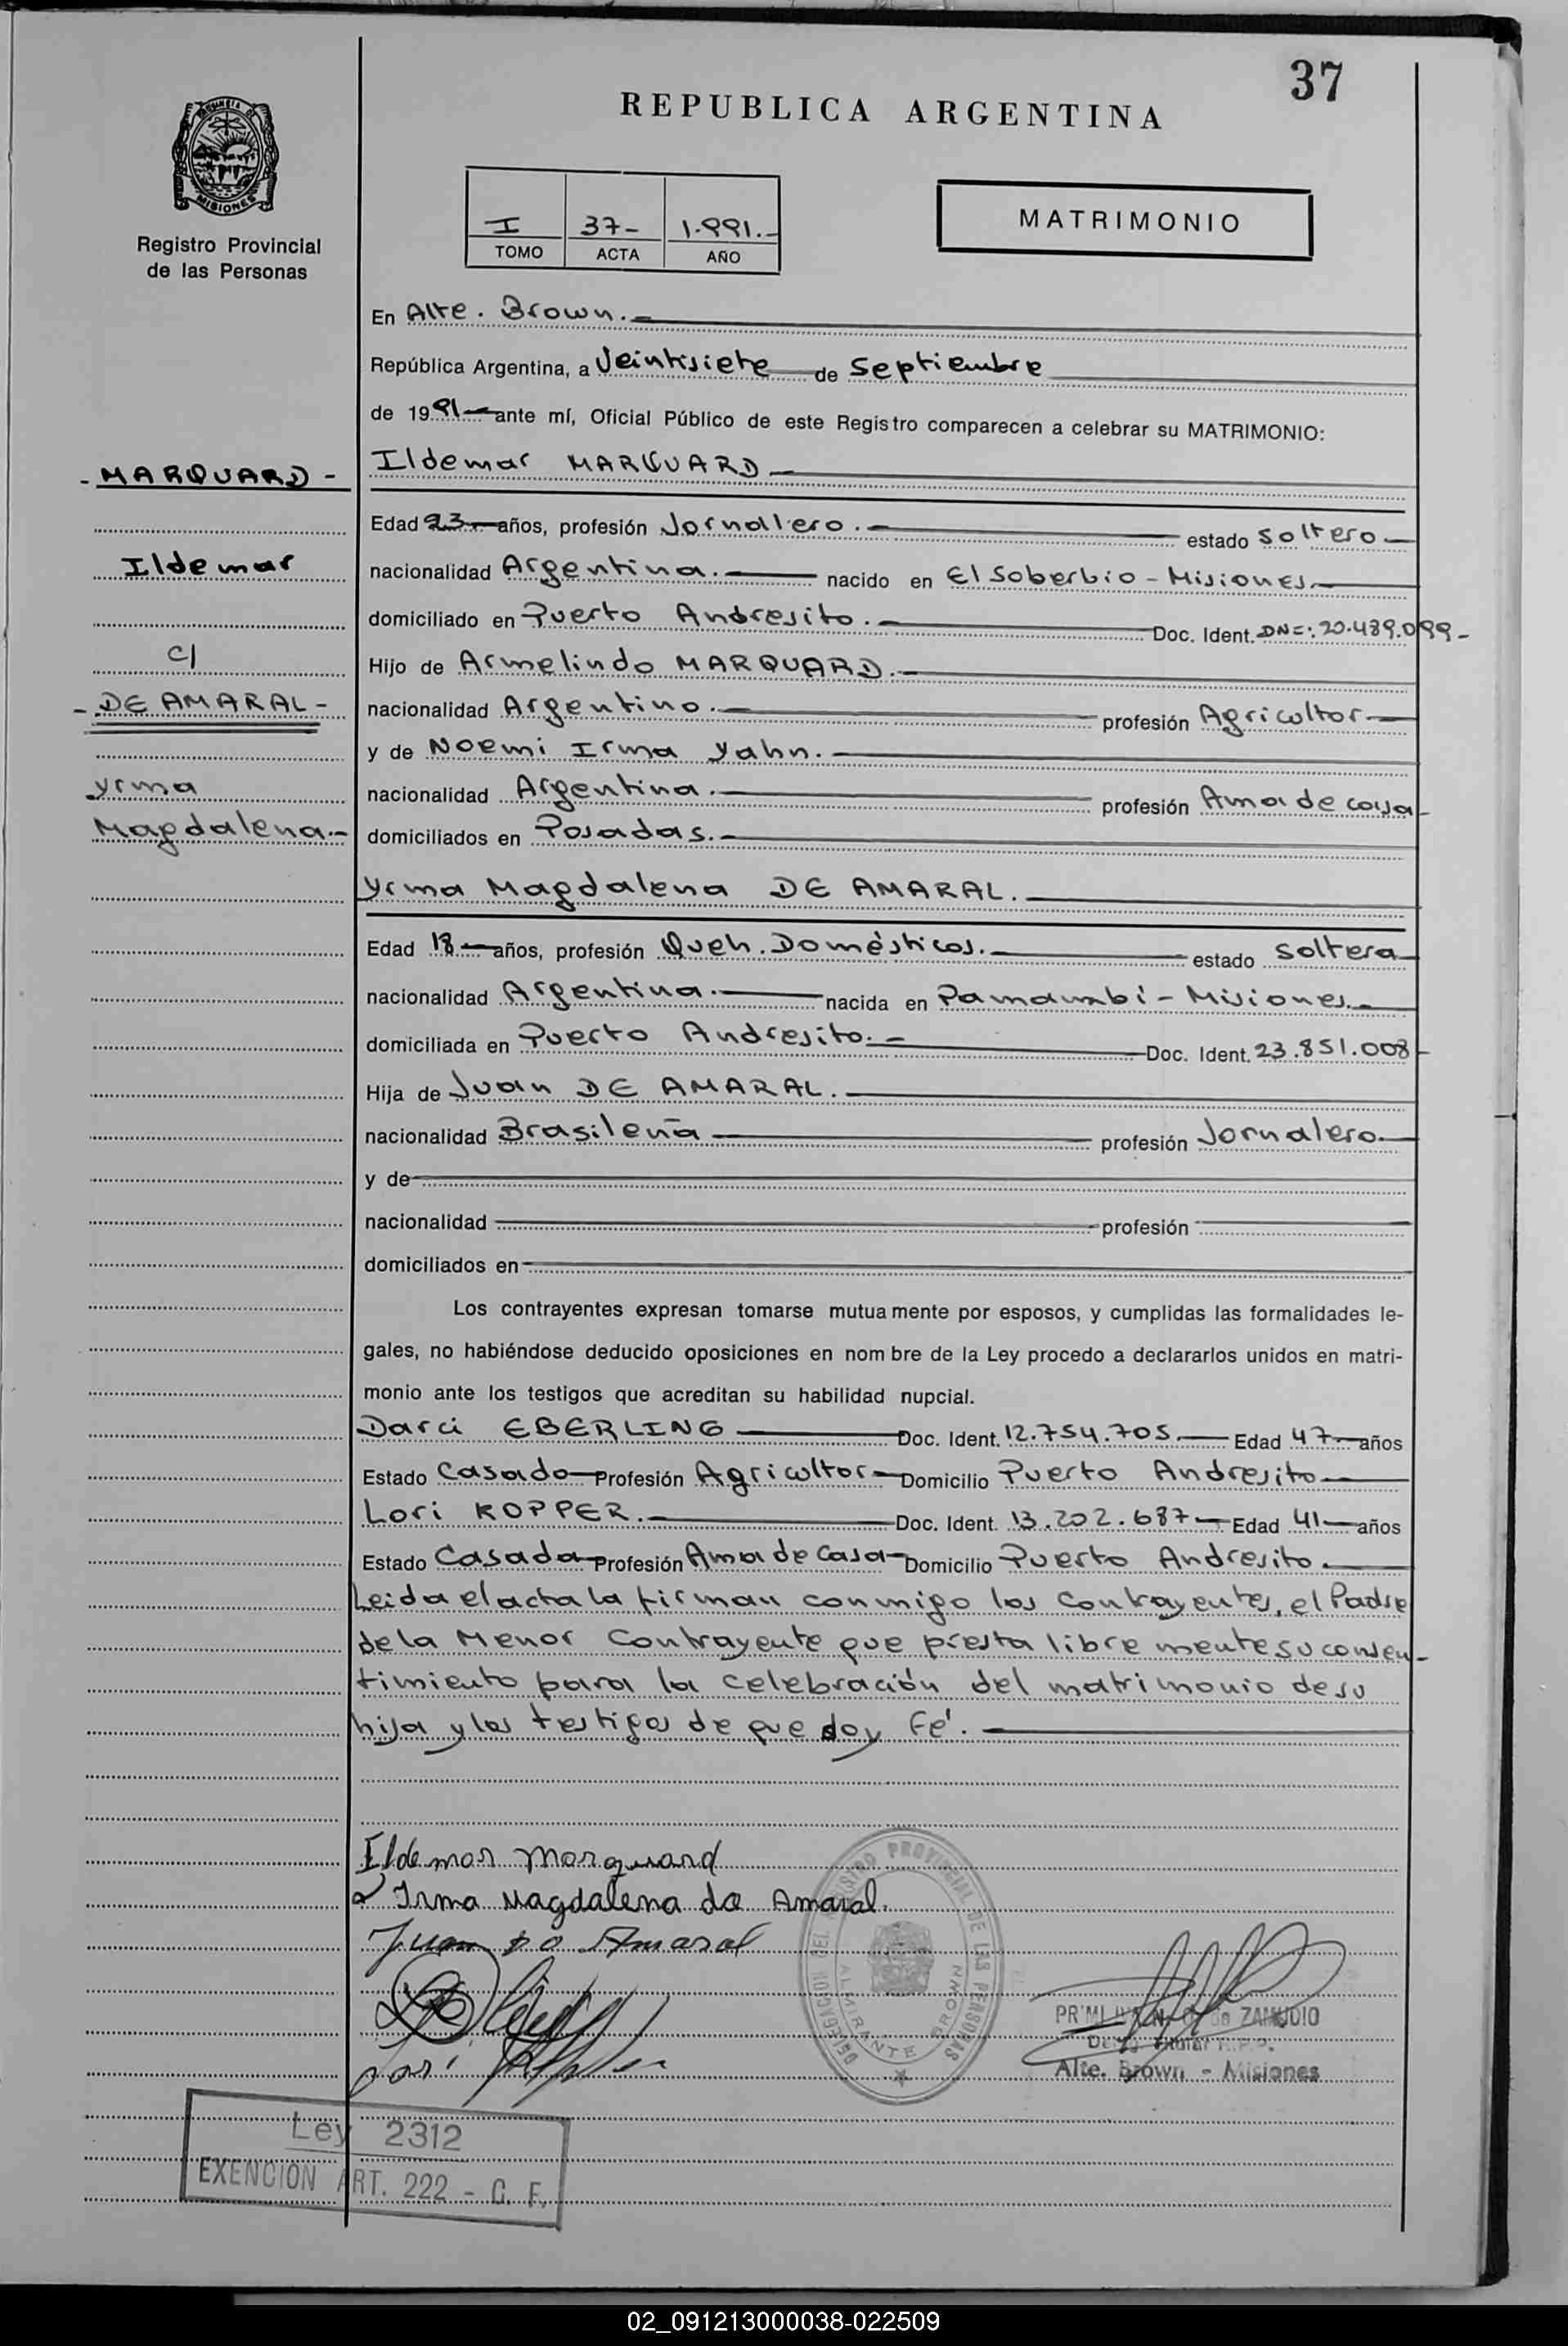 37
REPUBLICA ARGENTINA
MISIONES
Registro Provincial
de las Personas
I 37- 1.991.-
TOMO ACTA AÑO
MATRIMONIO
En Alte. Brown.-
República Argentina, a Veintisiete de Septiembre
de 1991 ante mí, Oficial Público de este Registro comparecen a celebrar su MATRIMONIO:
- MARQUARD -
Ildemar
c/
- DE AMARAL -
Yrma
Magdalena.-
Ildemar MARQUARD
Edad 23 años, profesión Jornalero.- estado Soltero
nacionalidad Argentina. nacido en El Soberbio - Misiones
domiciliado en Puerto Andresito.- Doc. Ident. 20.489.099-
Hijo de Armelindo MARQUARD.-
nacionalidad Argentino.- profesión Agricultor
y de Noemi Irma Yahn.-
nacionalidad Argentina.- profesión Ama de casa
domiciliados en Posadas.-
Yrma Magdalena DE AMARAL.
Edad 18 años, profesión Queh. Domésticos.- estado Soltera
nacionalidad Argentina. nacida en Panambí - Misiones.
domiciliada en Puerto Andresito.- Doc. Ident. 23.851.008-
Hija de Juan DE AMARAL.
nacionalidad Brasileña profesión Jornalero
y de
nacionalidad profesión
domiciliados en
Los contrayentes expresan tomarse mutuamente por esposos, y cumplidas las formalidades le-
gales, no habiéndose deducido oposiciones en nombre de la Ley procedo a declararlos unidos en matri-
monio ante los testigos que acreditan su habilidad nupcial.
Darci EBERLING Doc. Ident. 12.754.705. Edad 47 años
Estado Casado Profesión Agricultor Domicilio Puerto Andresito
Lori KOPPER. Doc. Ident. 13.202.687 Edad 41 años
Estado Casada Profesión Ama de Casa Domicilio Puerto Andresito.
Leida el acta la firman conmigo los Contrayentes, el Padre
de la Menor Contrayente que presta libremente su consen-
timiento para la celebración del matrimonio de su
hija y los testigos de que doy Fé.
Ildemar Marquard
Irma Magdalena da Amaral.
Juan do Amaral
DELEGACION DEL REGISTRO PROVINCIAL DE LAS PERSONAS
ALMIRANTE BROWN
de ZAMUDIO
Alte. Brown - Misiones
Ley 2312
EXENCION ART. 222 - C. F.
02_091213000038-022509